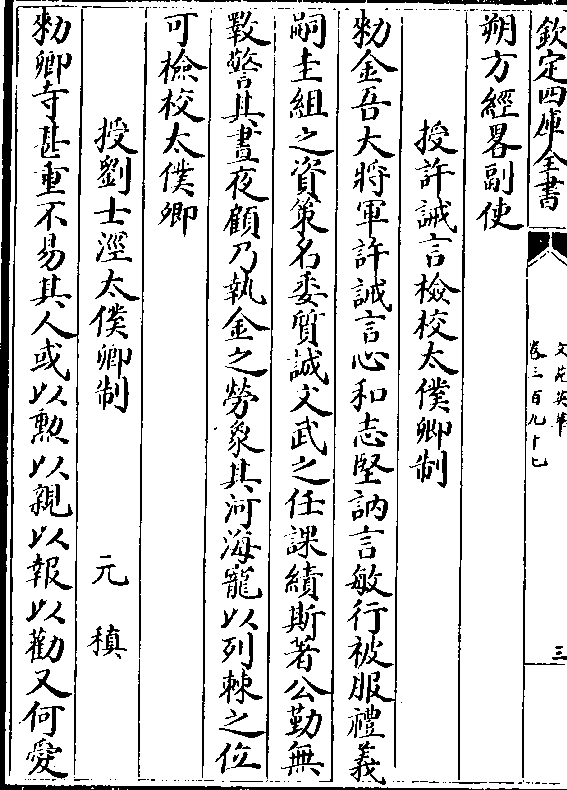 欽定四庫全書
文苑英華
卷三百九十七
三
朔方經畧副使
授許誡言檢校太僕卿制
勑金吾大將軍許誡言心和志堅訥言敏行被服禮義
嗣圭組之資策名委質誠文武之任課績斯著公勤無
斁警其晝夜顧乃執金之勞象其河海寵以列棘之位
可檢校太僕卿
授劉士涇太僕卿制　元稹
勑卿寺甚重不易其人或以勲以親以報以勸又何愛